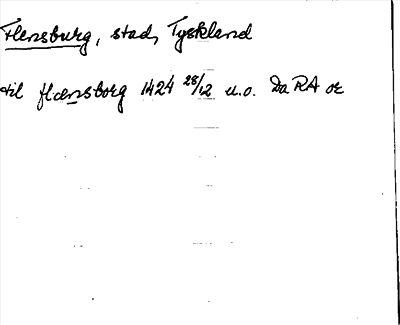 Flensburg, stad, Tyskland
til flænsborg 1424 28/12 u.o. DaRA or